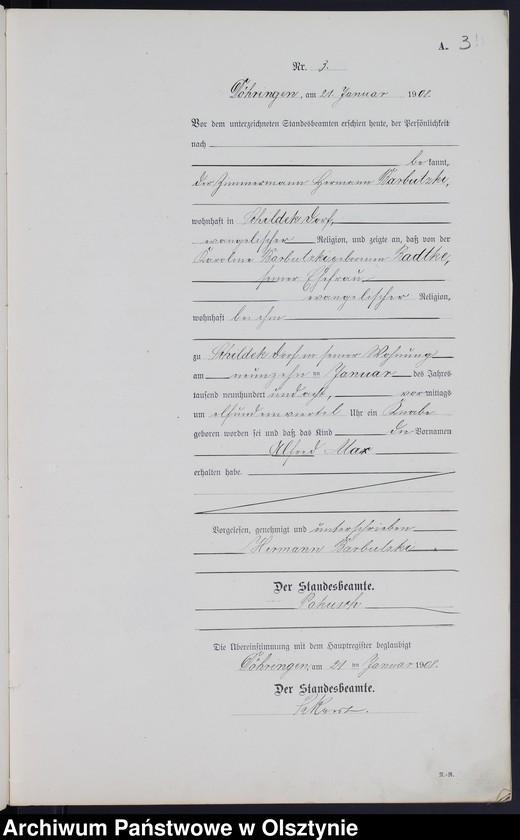 A. 3
Nr. 3.
Döhringen, am 21. Januar 1908.
Vor dem unterzeichneten Standesbeamten erschien heute, der Persönlichkeit
nach
be kannt,
der Zimmermann Hermann Barbutzki,
wohnhaft in Schildek Dorf,
evangelischer Religion, und zeigte an, daß von der
Karoline Barbutzki geborenen Radtke,
seiner Ehefrau
evangelischer Religion,
wohnhaft bei ihm
zu Schildek Dorf in seiner Wohnung
am neunzehn ten Januar des Jahres
tausend neunhundert und acht, vor mittags
um elf und ein viertel Uhr ein Knabe
geboren worden sei und daß das Kind die Vornamen
Alfred Max
erhalten habe.
Vorgelesen, genehmigt und unterschrieben
Hermann Barbutzki
Der Standesbeamte.
Die Übereinstimmung mit dem Hauptregister beglaubigt
Döhringen, am 21 ten Januar 1908.
Der Standesbeamte.
A.-R.
Archiwum Państwowe w Olsztynie